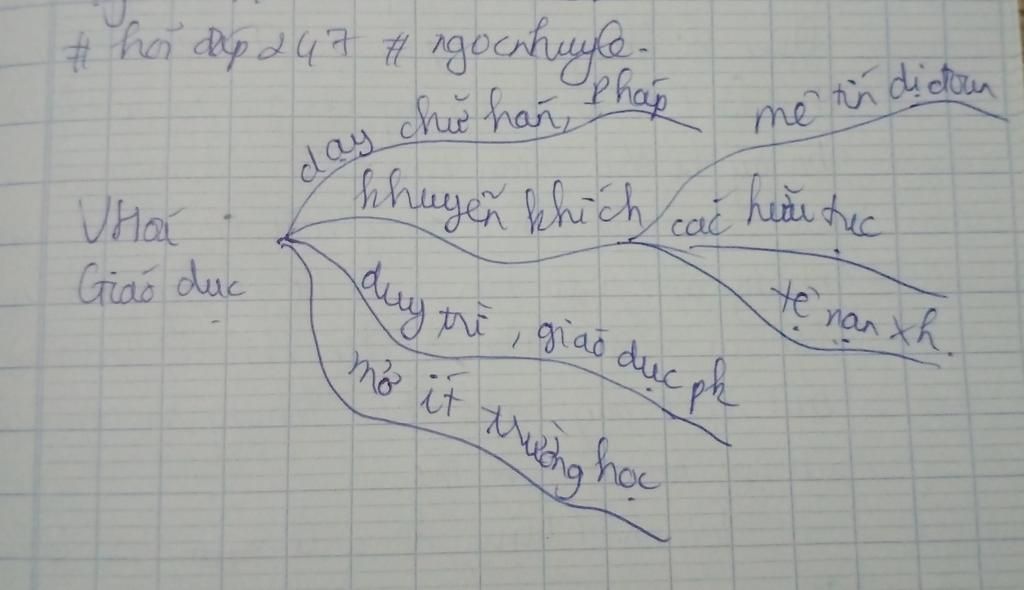 # hỏi đáp 247 # ngocnhuyle.
VHoá
Giáo dục
dạy chữ hán, Pháp
khuyến khích
mê tín dị đoan
các hủ tục
tệ nạn xh.
duy trì, giáo dục pk
mở ít trường học